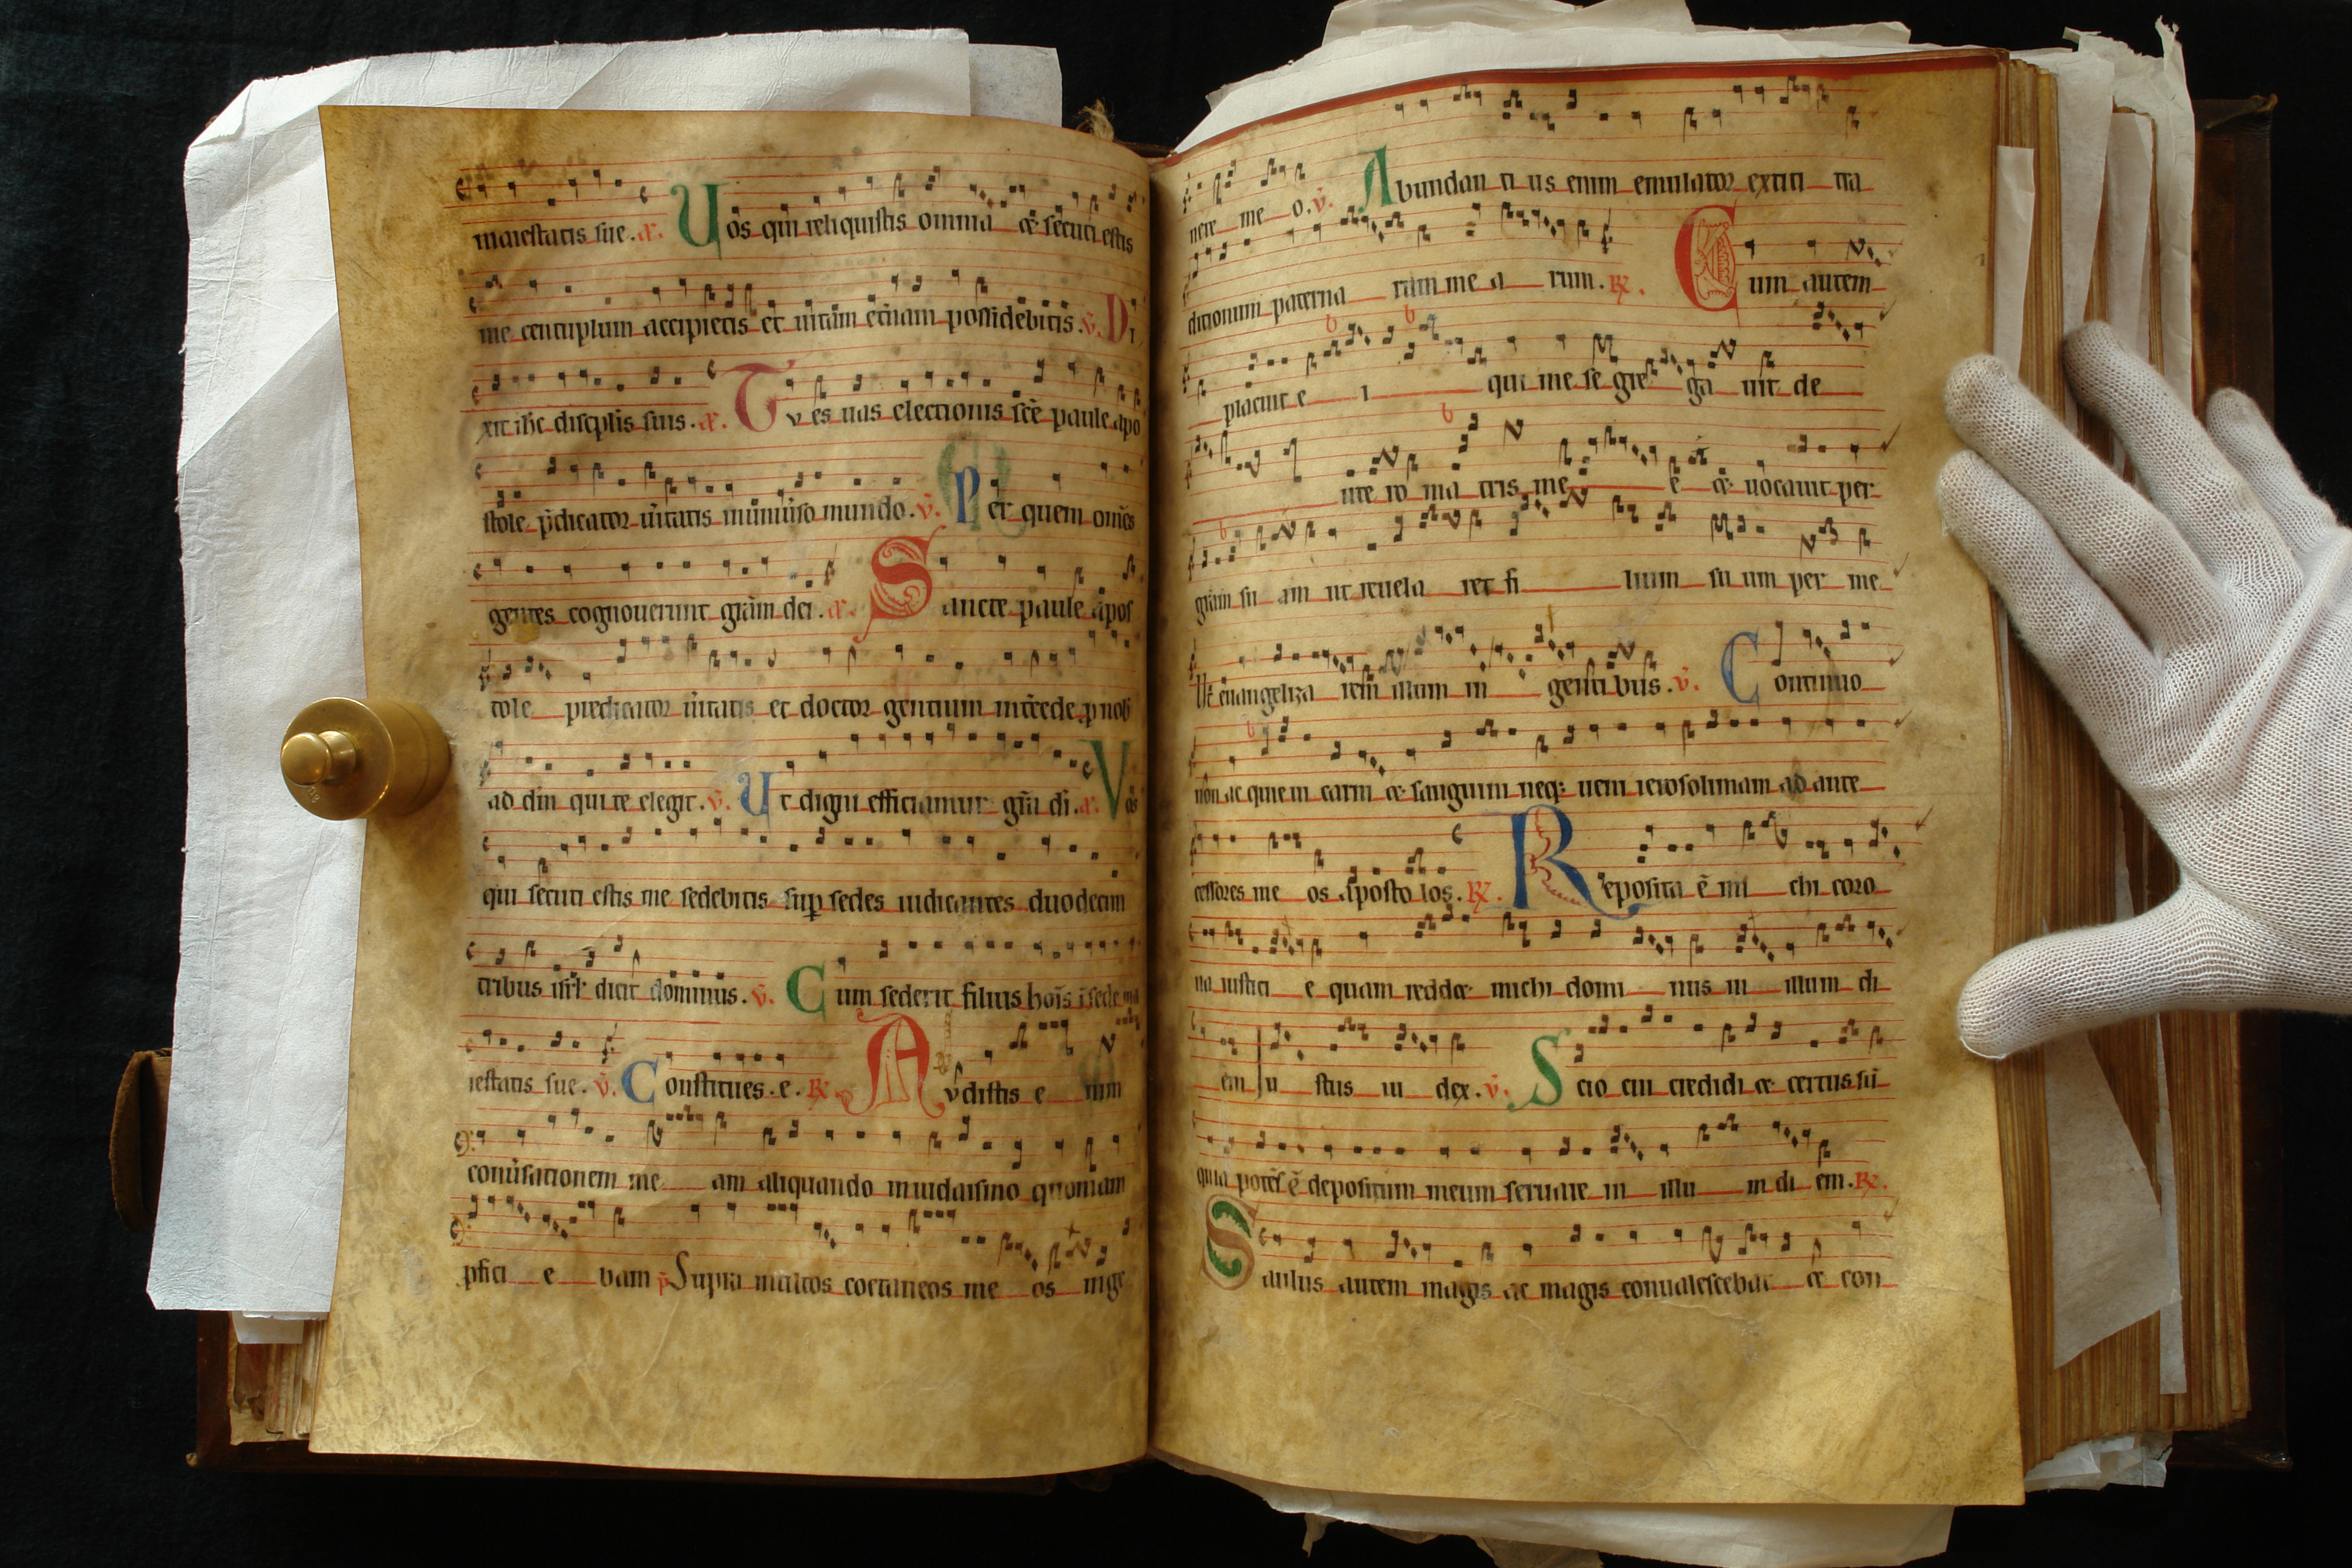 maiestatis sue. a. Uos qui reliquistis omnia et secuti estis
me centuplum accipietis et uitam et̄nam possidebitis. v̄. Di
xit ihc discip̄lis suis. a. Tv es uas electionis sc̄e paule apo
stole p̄dicator ūitatis in uniūso mundo. v̄. Per quem om̄s
gentes cognouerunt grām dei. a. Sancte paule apos
tole predicator ūitatis et doctor gentium int̄cede p nob
ad dn̄ qui te elegit. v̄. Ut digni efficiamur grā di. a. Vos
qui secuti estis me sedebitis sup sedes iudicantes duodecim
tribus isrl' dicit dominus. v̄. Cum sederit filius hoīs ī sede ma
iestatis sue. v̄. Constitues. e. R. Avdistis e nim
conūsationem me am aliquando in iudaismo quoniam
p̄fici e bam v̄ Supra multos coetaneos me os in ge
nere me o. v̄. Abundan ti us enim emulator extiti tra
ditionum paterna rum me a rum. R. Cum autem
placuit e i qui me se gre ga uit de
ute ro ma tris me e et uocauit per
grām su am ut reuela ret fi lium su um per me
Ut euangeliza rem illum in gentibus. v̄. Continuo
non acquieui carni et sanguini neq; ueni ierosolimam ad ante
cessores me os aposto los. R. Reposita ē mi chi coro
na iustici e quam reddet michi domi nus in illum di
em iu stus iu dex. v̄. Scio cui credidi et certus sū
quia potēs ē depositum meum seruare in illu m di em. R.
Saulus autem magis ac magis conualescebat et con